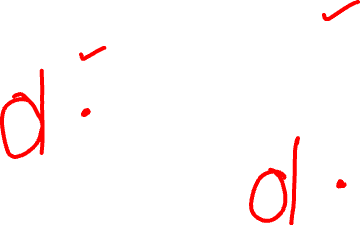 d.
d.